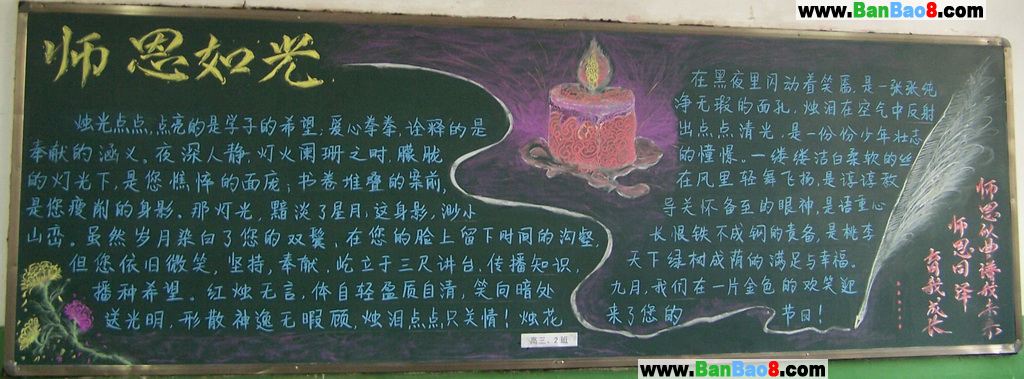 www.BanBao8.com
师恩如光
烛光点点,点亮的是学子的希望;爱心拳拳,诠释的是
奉献的涵义。夜深人静,灯火阑珊之时,朦胧
的灯光下,是您憔悴的面庞;书卷堆叠的案前,
是您瘦削的身影。那灯光,黯淡了星月;这身影,渺小
山峦。虽然岁月染白了您的双鬓,在您的脸上留下时间的沟壑,
但您依旧微笑,坚持,奉献,屹立于三尺讲台,传播知识,
播种希望。红烛无言,体自轻盈质自清,笑向暗处
送光明,形散神逸无暇顾,烛泪点点只关情!烛花
在黑夜里闪动着笑靥,是一张张纯
净无瑕的面孔,烛泪在空气中反射
出点点清光,是一份份少年壮志
的憧憬。一缕缕洁白柔软的丝
在风里轻舞飞扬,是谆谆教
导关怀备至的眼神,是语重心
长恨铁不成钢的责备,是桃李
天下绿树成荫的满足与幸福。
九月,我们在一片金色的欢笑迎
来了您的 节日!
师恩
师恩回泽
育我成长
高三、2班
www.BanBao8.com